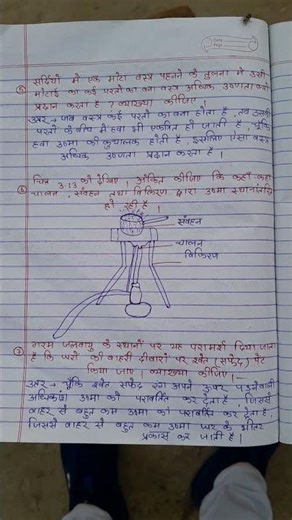 ⑤ सर्दियों में एक मोटा वस्त्र पहनने के तुलना में उसी
मोटाई का कई परतों का बना वस्त्र अधिक उष्णता क्यों
प्रदान करता है ? व्याख्या कीजिए
उत्तर → जब वस्त्र कई परतों का बना होता है , तब उनकी
परतों के बीच में हवा भी एकत्रित हो जाती है , चूंकि
हवा उष्मा की कुचालक होती है , इसलिए ऐसा वस्त्र
अधिक उष्णता प्रदान करता है ।
⑥ चित्र 3.13 को देखिए , अंकित कीजिए कि कहाँ-कहाँ
चालन , संवहन तथा विकिरण द्वारा उष्मा स्थानांतरित
हो रही है ।
संवहन
चालन
विकिरण
⑦ गरम जलवायु के स्थानों पर यह परामर्श दिया जाता
है कि घरों की बाहरी दीवारों पर श्वेत (सफ़ेद) पेंट
किया जाए । व्याख्या कीजिए ।
उत्तर → चूंकि श्वेत सफेद रंग अपने ऊपर पड़नेवाली
अधिकांश उष्मा को परावर्तित कर देता है जिससे
बाहर से बहुत कम उष्मा को परावर्तित कर देता है ,
जिससे बाहर से बहुत कम उष्मा घर के भीतर
प्रकास कर जाती है ।